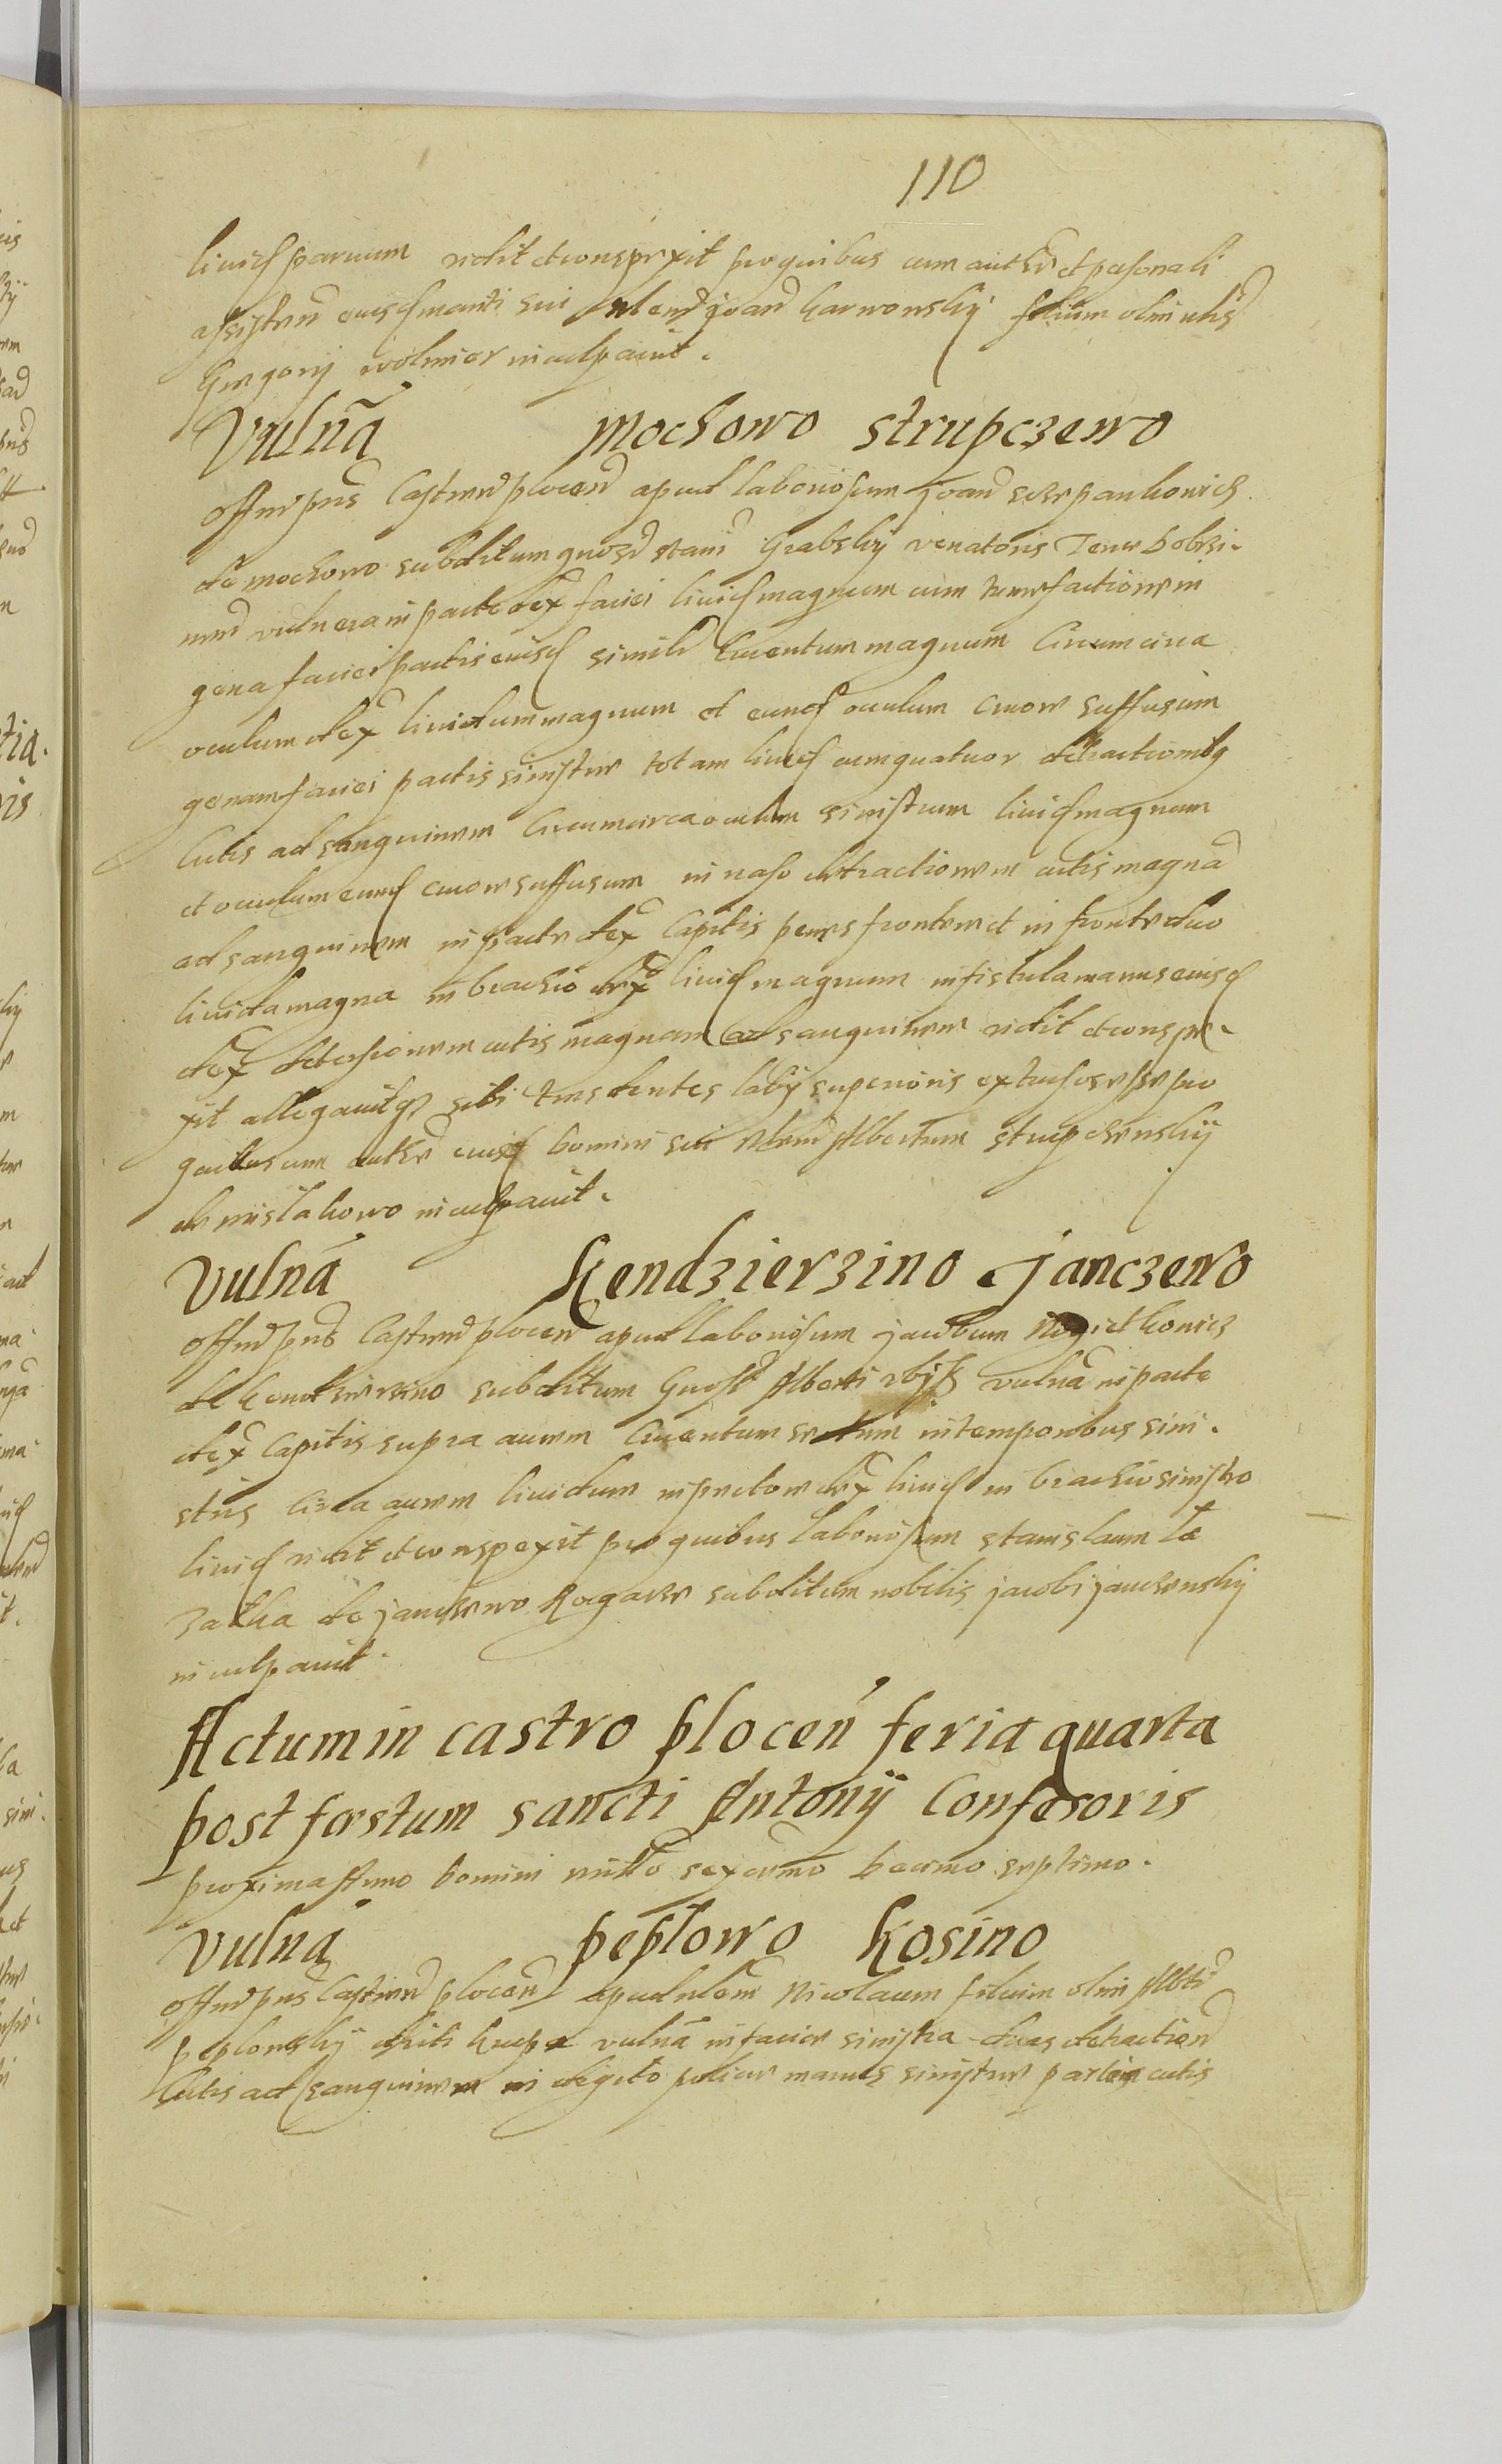 110
livid parvum vidit et conspexit pro quibus cum auth et personali
assisten eiusd mariti sui Nlem Joan Karwowsky filium olim nlis
Gregorij inculpavit.
Vulna Mochowo Strupczewo
Offm pns Castren plocen apud laboriosum Joan Sczepankowicz
de Mochowo subditum gnosi Stani Grabsky venatoris Terre Dobrzi-
nen vulnera in parte dex faciei livid magnum cum tumefactione in
gena faciei partis eiusd simile cruentum magnum Circumcirca
oculum dex lividum magnum et eund oculum cruore suffusum
genam faciei partis sinistre totam livid cum quatuor detractionibq
Cutis ad sanguinem Circumcirca oculum sinistrum livid magnum
et oculum eund cruore suffusum in naso detractionem cutis magna
ad sanguinem in parte dex Capitis penes frontem et in fronte duo
livida magna in brachio dex livid magnum in fistula manus eiusd
dex detersionem cutis magnam ad sanguinem vidit et conspe-
xit allegavitq sibi tres dentes labij superioris extrusos esse pro
quibus cum auth eiusd Domini sui Nlem Albertum Strupczensky
de inculpavit.
Vulna Kendzierzino Janczewo
Offm pns Castren plocen apud laboriosum Jacobum
de Kendzierzino subditum Gnosi Alberti ibid vulna in parte
dex Capitis supra aurem Cruentum sectum in temporibus sini-
stris Circa aurem lividum in pectore dex livid in brachio sinistro
livid vidit et conspexit pro quibus laboriosum Stanislaum La
zatka de Janczewo Rogacze subditum nobilis Jacobi Janczensky
inculpavit.
Actum in castro plocen feria quarta
post festum sancti Antonij Confesoris
proxima Anno Domini millo sexcmo Decimo septimo.
Vulna peplowo Kosino
Offm pns Castren plocen apud nlem Nicolaum filium olim Alb
Peplowsky dicti Krupa vulna in facie sinistra duas detraction
Cutis ad sanguinem in digito police manus sinistre partem cutis